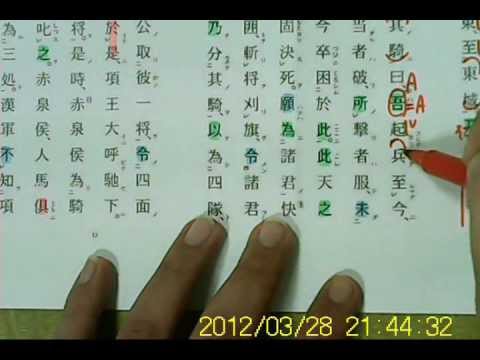 東至東
其騎曰吾起兵至今、
当者破所撃者服、未
今卒困於此此天之
固決死願為諸君快
囲斬将刈旗令諸君
乃分其騎以為四隊、
公取彼一将令四面
於是項王大呼馳下、
将是時、赤泉侯為騎
叱之赤泉侯人馬倶
為三処漢軍不知項
A=A
2012/03/28 21:44:32